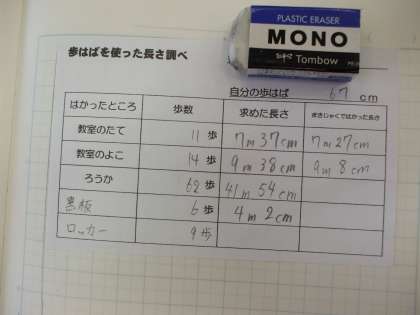 PLASTIC ERASER
MONO
Tombow
歩はばを使った長さ調べ
自分の歩はば 67 cm
はかったところ 歩数 求めた長さ まきじゃくではかった長さ
教室のたて 11 歩 7m 37cm 7m 27cm
教室のよこ 14 歩 9m 38cm 9m 8cm
ろうか 62 歩 41m 54cm
黒板 6 歩 4m 2cm
ロッカー 9 歩